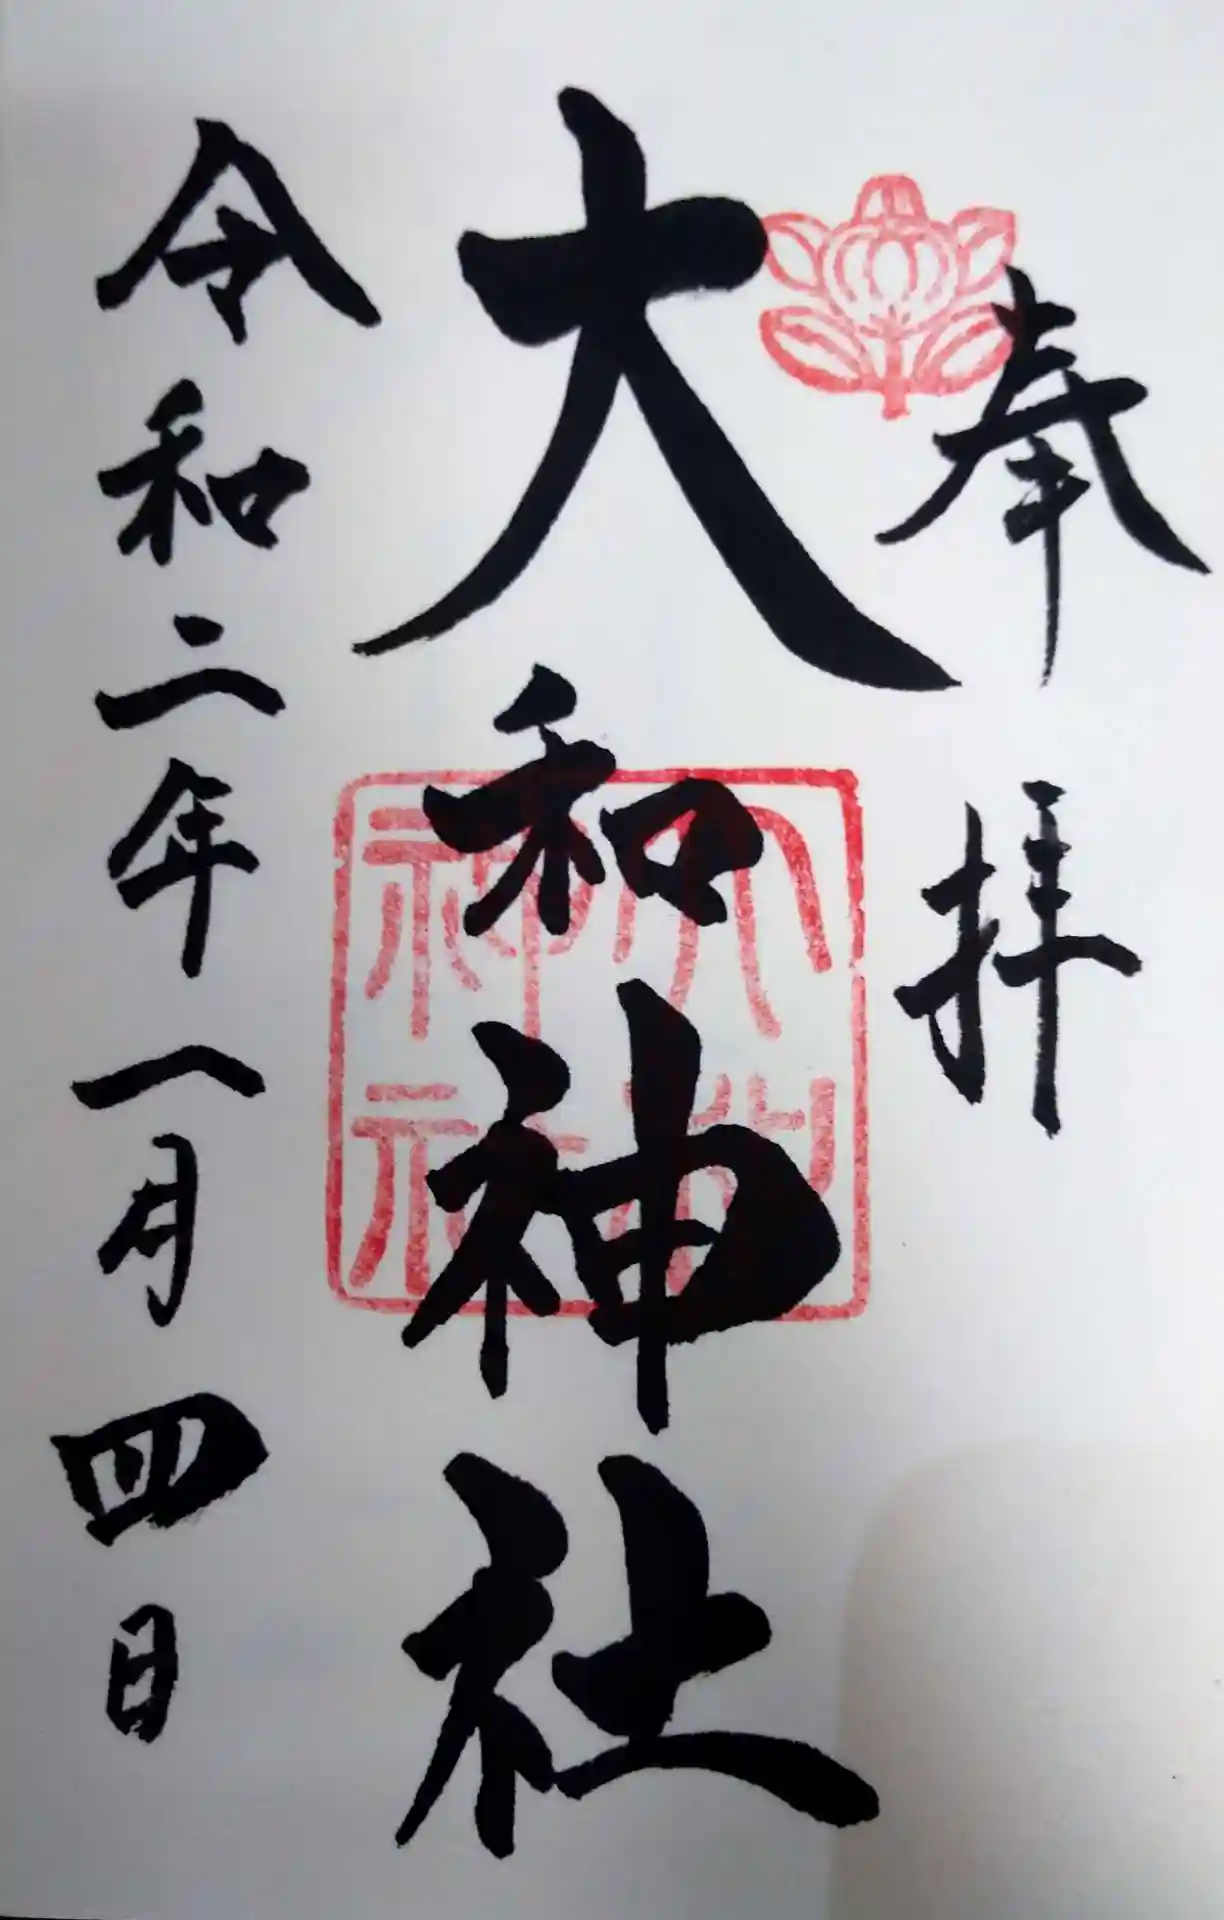 奉拝
大和神社
令和二年一月四日
大和
神社